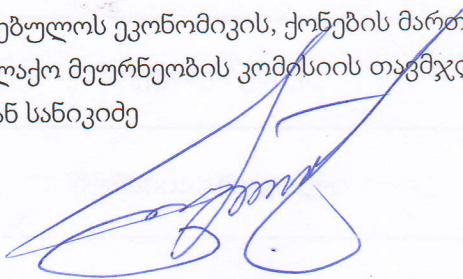 ებულოს ეკონომიკის, ქონების მართ
ლაქო მეურნეობის კომისიის თავმჯდ
ან სანიკიძე